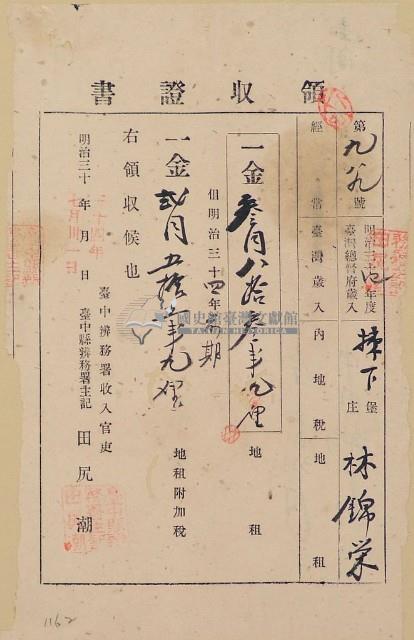 領收證書
第九九號 明治三十四年度 臺灣總督府歲入 揀下堡 庄 林錦荣
經常 臺灣歲入 內地稅 地租
一金參円八拾參錢九厘 地租
但明治三十四年 期
一金貳円五拾 錢九厘 地租附加稅
右領收候也
明治三十 年 月 日 臺中辨務署收入官吏
臺中縣辨務署主記 田尻 潮
國史館臺灣文獻館
TAIWAN HISTORICA
1162